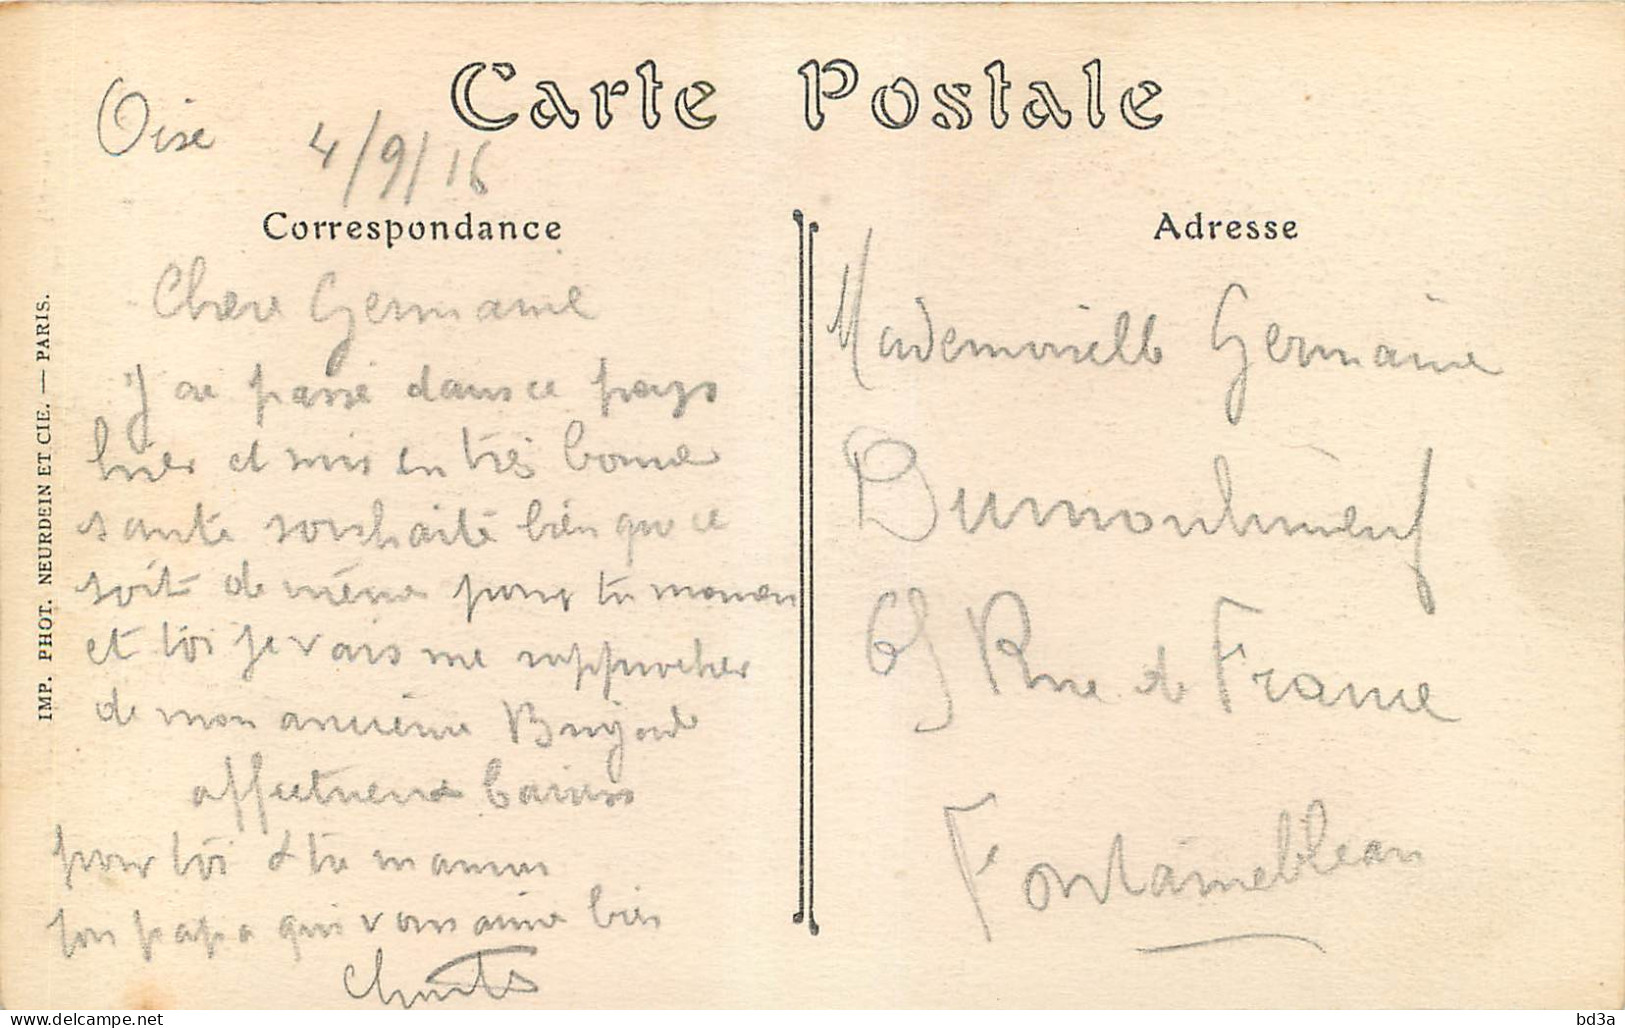 Carte Postale
Oise 4/9/16
Correspondance
Chere Germaine
J ai passé dans ce pays
hier et suis en très bonne
santé souhaite bien que ce
soit de même pour ta maman
et toi je vais me rapprocher
de mon ancienne Brigade
affectueux baisers
pour toi et ta maman
ton papa qui vous aime bien
Adresse
Mademoiselle Germaine
Dumoulineuf
65 Rue de France
Fontainebleau
IMP. PHOT. NEURDEIN ET CIE. — PARIS.
delcampe.net
bd3a